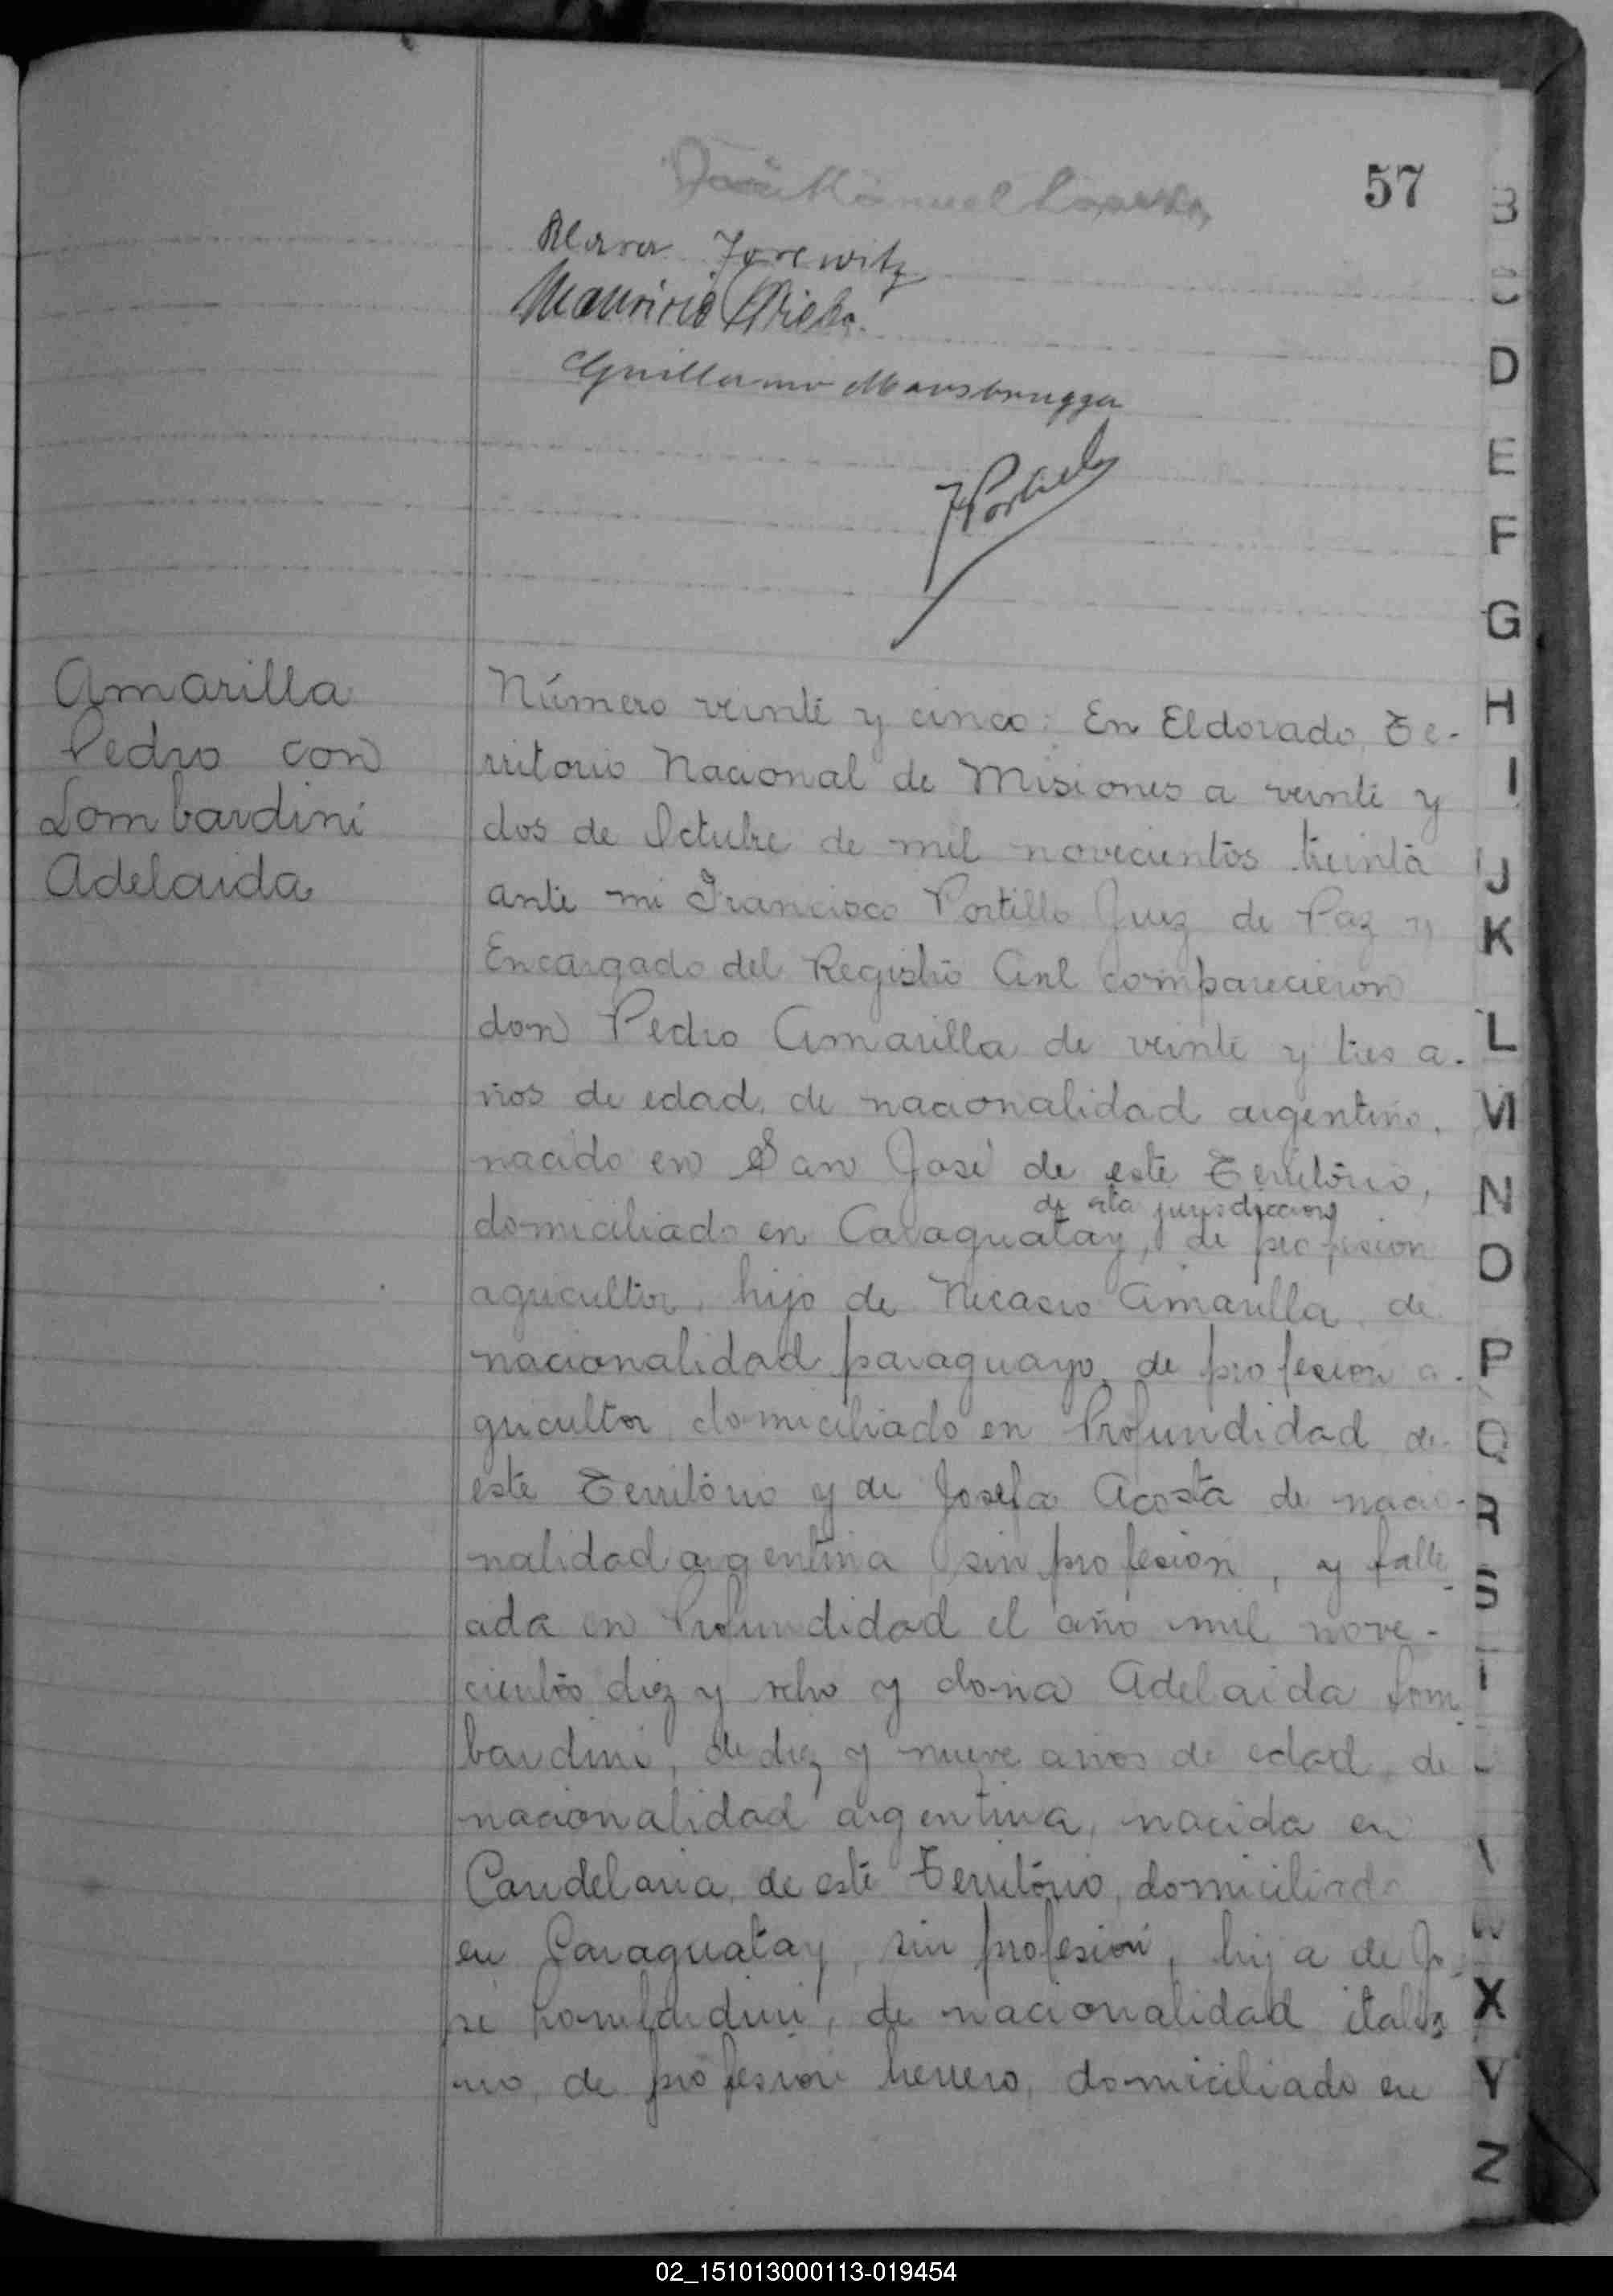 57
José Manuel
Mauricio
Guillermo Mausbrugger
FPortillo
Amarilla
Pedro con
Lombardini
Adelaida
Número veinte y cinco: En Eldorado, Te-
rritorio Nacional de Misiones a veinte y
dos de Octubre de mil novecientos treinta
ante mi Francisco Portillo Juez de Paz y
Encargado del Registro Civil comparecieron
don Pedro Amarilla de veinte y tres a-
ños de edad, de nacionalidad argentino,
nacido en San José de este Territorio,
de esta jurisdiccion
domiciliado en Caraguatay, de profesion
agricultor, hijo de Nicasio Amarilla, de
nacionalidad paraguayo, de profesion a-
gricultor domiciliado en Profundidad de
este Territorio y de Josefa Acosta de nacio-
nalidad argentina, sin profesion, y falle-
cida en Profundidad el año mil nove-
cientos diez y ocho y doña Adelaida Lom-
bardini, de diez y nueve años de edad, de
nacionalidad argentina, nacida en
Candelaria, de este Territorio, domiciliada
en Caraguatay, sin profesion, hija de Jo-
sé Lombardini, de nacionalidad italia-
no, de profesion herrero, domiciliado en
B
C
D
E
F
G
H
I
J
K
L
M
N
O
P
Q
R
S
T
W
X
Y
Z
02_151013000113-019454